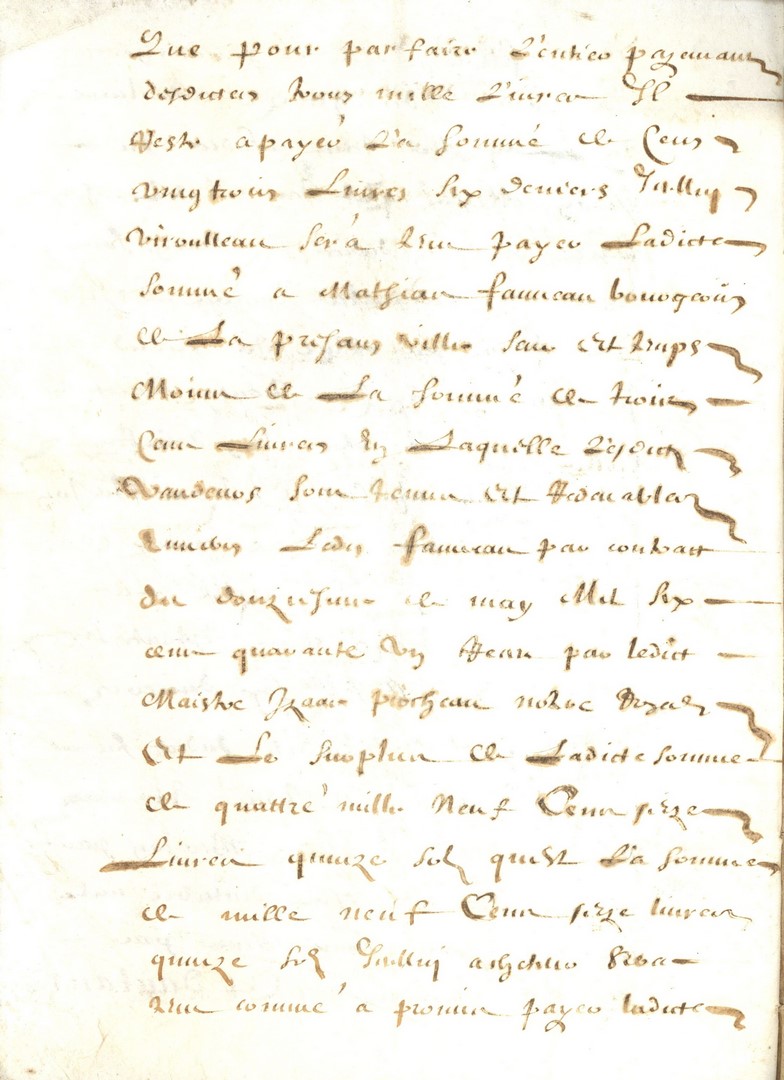 Que pour parfaire L'entier payemant
desdictes trois mille Livres Il
Reste a payer La somme de Cens
vingtrois Livres six deniers Icelluy
viroulleau sera tenu payer Ladicte
somme a Mathieu fauveau bourgeois
de La presant ville sur Et temps
Moins de La somme de trois
Cens Livres En Laquelle Lesdicts
Vandeurs sont tenus Et Redevables
Envers Ledit fauveau par contract
du douziesme de may Mil six
cens quarante Un Receu par ledict
Maistre Izaac procheau notere Royal
Et Le surplus de Ladicte somme
de quattre mille Neuf Cens seize
Livres quinze solz quest La somme
de mille neuf Cens seize livres
quinze solz Icelluy achepteur sera
tenu comme a promis payer ladicte